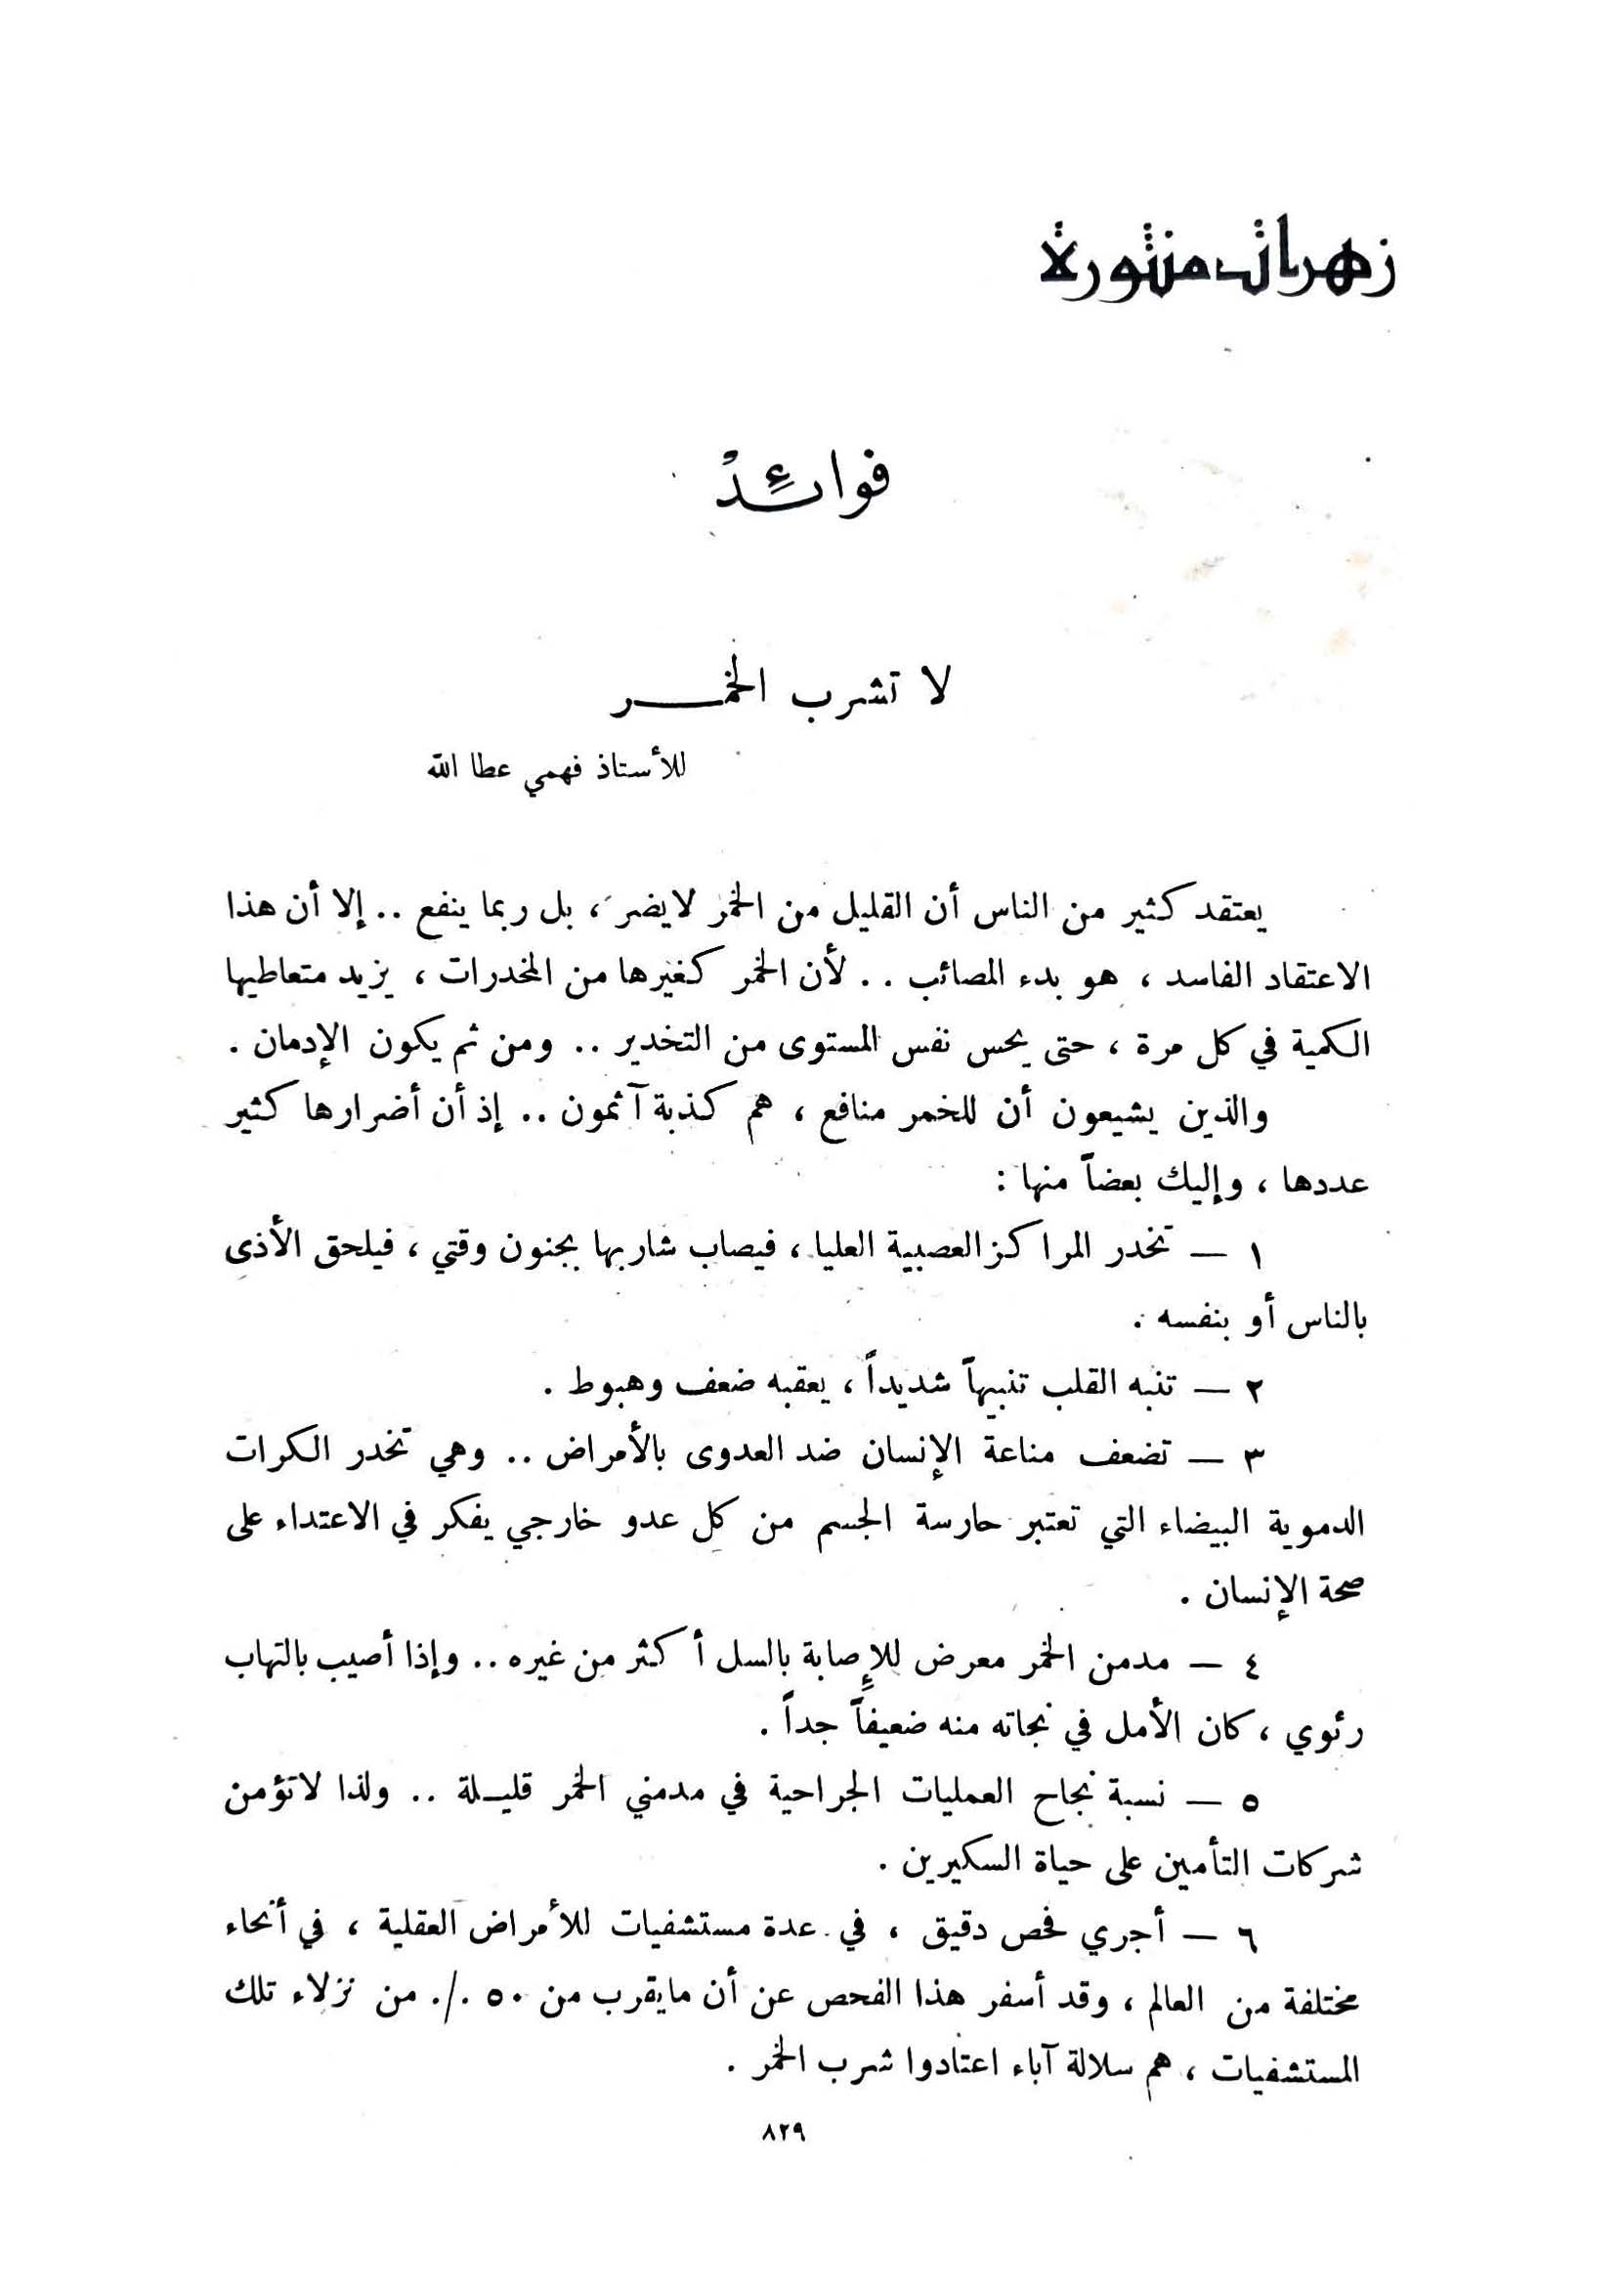 زهرات منثورة
فوائد
لا تشرب الخمـــر
للأستاذ فهمي عطا الله
يعتقد كثير من الناس أن القليل من الخمر لايضر ، بل ربما ينفع .. إلا أن هذا
الاعتقاد الفاسد ، هو بدء المصائب .. لأن الخمر كغيرها من المخدرات ، يزيد متعاطيها
الكمية في كل مرة ، حتى يحس نفس المستوى من التخدير .. ومن ثم يكون الإدمان .
والذين يشيعون أن للخمر منافع ، هم كذبة آثمون .. إذ أن أضرارها كثير
عددها ، وإليك بعضاً منها :
١ — تخدر المراكز العصبية العليا ، فيصاب شاربها بجنون وقتي ، فيلحق الأذى
بالناس أو بنفسه .
٢ — تنبه القلب تنبيهاً شديداً ، يعقبه ضعف وهبوط .
٣ — تضعف مناعة الإنسان ضد العدوى بالأمراض .. وهي تخدر الكرات
الدموية البيضاء التي تعتبر حارسة الجسم من كل عدو خارجي يفكر في الاعتداء على
صحة الإنسان .
٤ — مدمن الخمر معرض للإصابة بالسل أكثر من غيره .. وإذا أصيب بالتهاب
رئوي ، كان الأمل في نجاته منه ضعيفاً جداً .
٥ — نسبة نجاح العمليات الجراحية في مدمني الخمر قليـلة .. ولذا لاتؤمن
شركات التأمين على حياة السكيرين .
٦ — أجري فحص دقيق ، في عدة مستشفيات للأمراض العقلية ، في أنحاء
مختلفة من العالم ، وقد أسفر هذا الفحص عن أن مايقرب من ٥٠ ./. من نزلاء تلك
المستشفيات ، هم سلالة آباء اعتادوا شرب الخمر .
٨٢٩